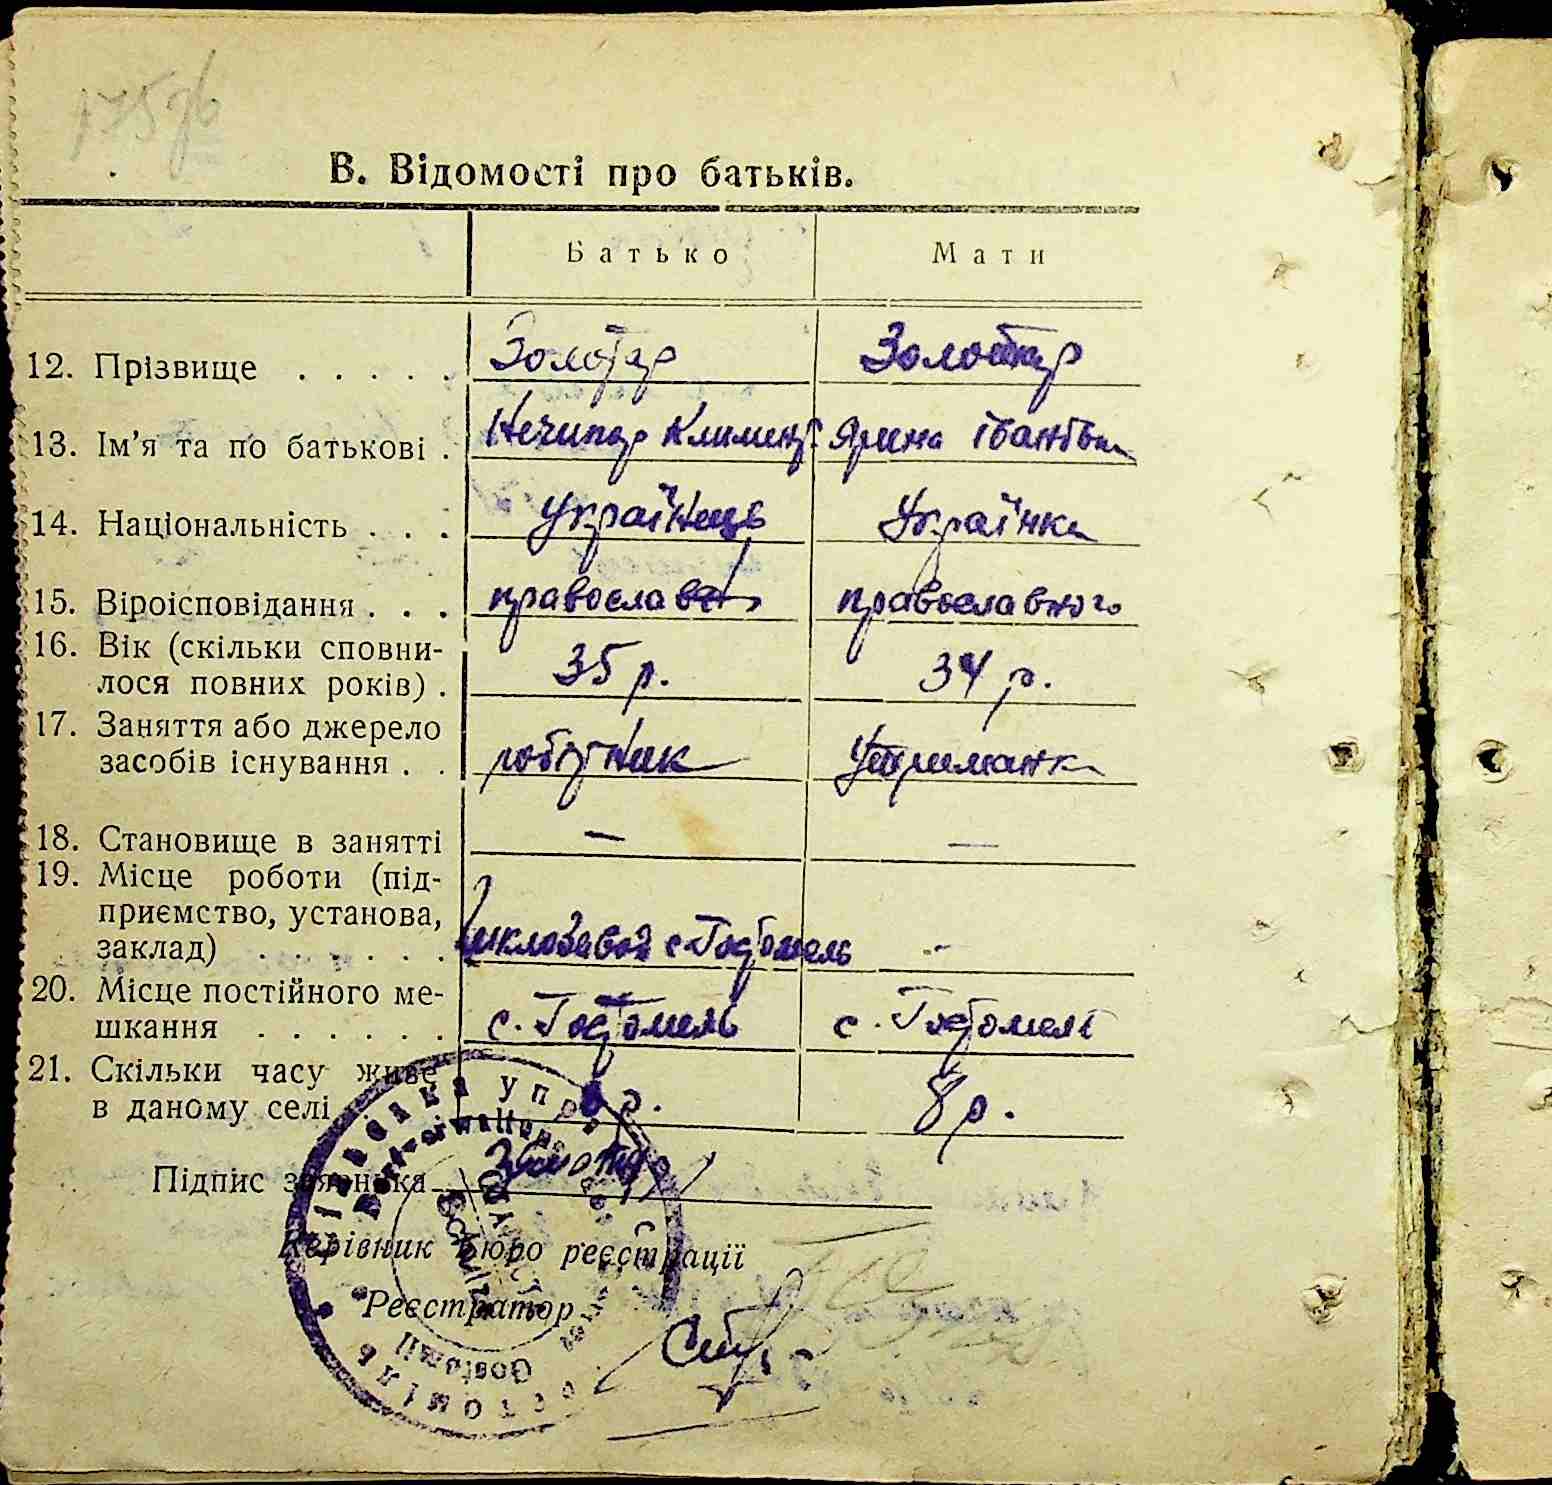 В. Відомості про батьків.
Батько Мати
12. Прізвище . . . . . Золотар Золотар
13. Ім'я та по батькові . Нечипор Климент Ярина Іванівна
14. Національність . . . Українець Українка
15. Віроісповідання . . . православн православного
16. Вік (скільки сповни-
лося повних років) . 35 р. 34 р.
17. Заняття або джерело
засобів існування . . робітник Утриманка
18. Становище в занятті — —
19. Місце роботи (під-
приємство, установа,
заклад) . . . . . . шклозавод с. Гостомель -
20. Місце постійного ме-
шкання . . . . . . с. Гостомель с. Гостомелі
21. Скільки часу живе
в даному селі р. 8 р.
Підпис заявника Золотар
Керівник Бюро реєстрації
Реєстратор
Gostomel